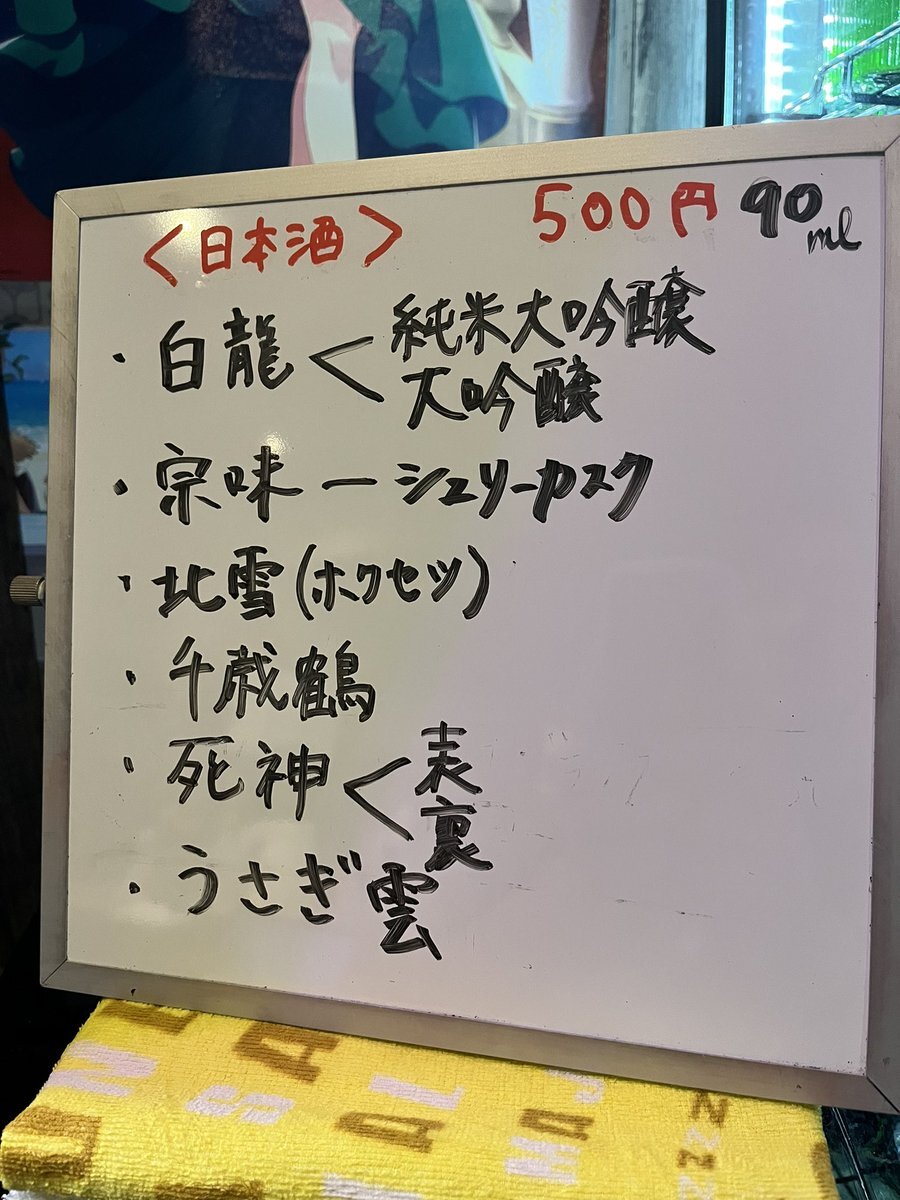 <日本酒> 500円 90ml
・白龍<純米大吟醸
大吟醸
・宗味ーシェリーカスク
・北雪(ホクセツ)
・千歳鶴
・死神<表
裏
・うさぎ雲